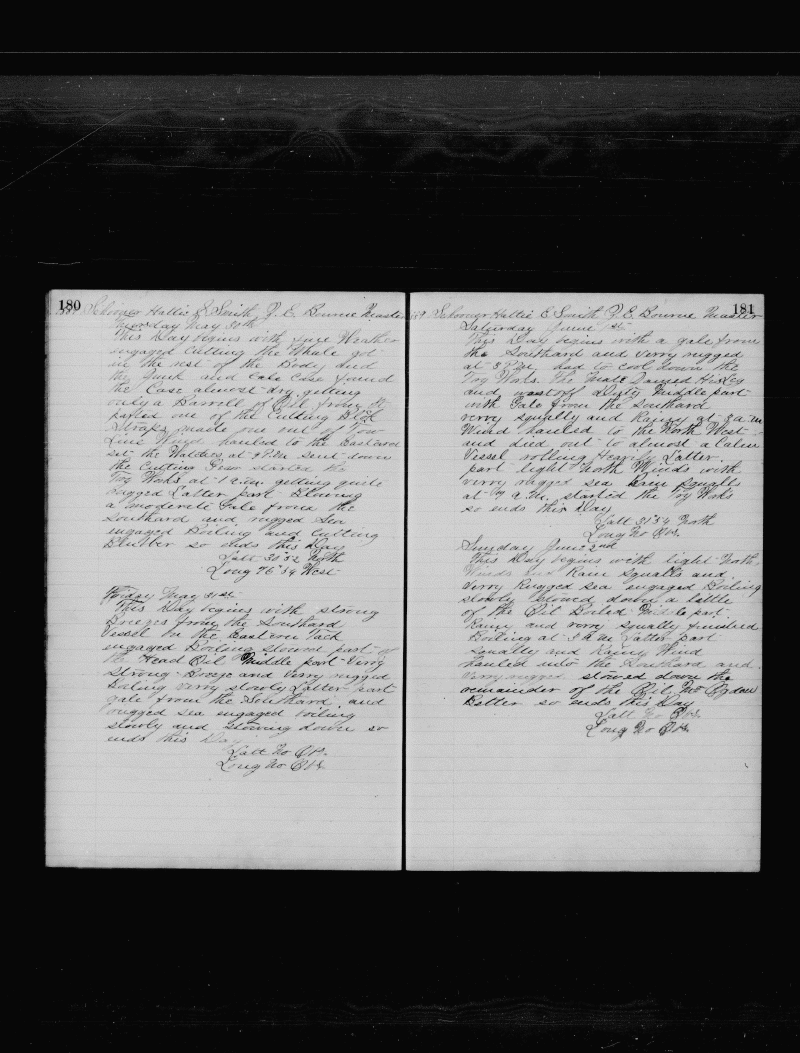 180
Schooner Hattie E Smith P. E. Bourne Master
Thursday May 30th
This Day begins with fine Weather
engaged Cutting the Whale got
in the rest of the Body and
the Junk and Case Case found
the Case almost dry getting
only a Barrell of Oil from it
parted one of the Cutting Block
Straps made one out of Tow
Line Wind hauled to the Eastward
set the Watches at 8 P.M. sent down
the Cutting Gear started the
Try Works at 1 a.m. getting quite
rugged Latter part Blowing
a moderate Gale from the
Southard and rugged Sea
engaged Boiling and Cutting
Blubber so ends this Day
Latt 31°52 North
Long 76°54 West
Friday May 31st
This Day begins with strong
Breezes from the Southard
Vessel on the Eastern Tack
engaged Boiling stowed part of
the Head Oil Middle part Verry
Strong Breeze and verry rugged
Boiling verry slowly Latter part
gale from the Southard and
rugged sea engaged boiling
slowly and stowing down so
ends this Day
Latt No Obs.
Long No Obs.
181
Schooner Hattie E Smith P. E. Bourne Master
Saturday June 1st
This Day begins with a gale from
the Southard and verry rugged
at 3 P.M. had to cool down the
Try Works. The Mate Damed His Leg
and was off Duty Middle part
with Gale from the Southard
verry squally and Rainy at 3 a m
Wind hauled to the North West
and died out to almost a Calm
Vessel rolling Heavily Latter
part light North Winds with
verry rugged sea Rain squalls
at a.m. started the Try Works
so ends this Day
Latt 31°54 North
Long No Obs.
Sunday June 2nd
This Day begins with light North
Winds and Rain Squalls and
Verry Rugged sea engaged Boiling
slowly stowed down a little
of the Oil Boiled Middle part
Rainy and verry squally finished
Boiling at 3 a m Latter part
Squally and Rainy Wind
hauled into the Southard and
verry rugged stowed down the
remainder of the Oil Mr Ogden
Better so ends this Day
Latt No Obs.
Long No Obs.